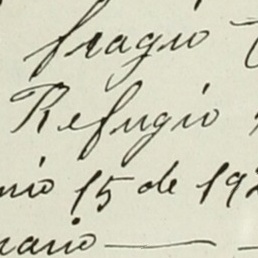 fragio
Refugio
nio 15 de 192
nario